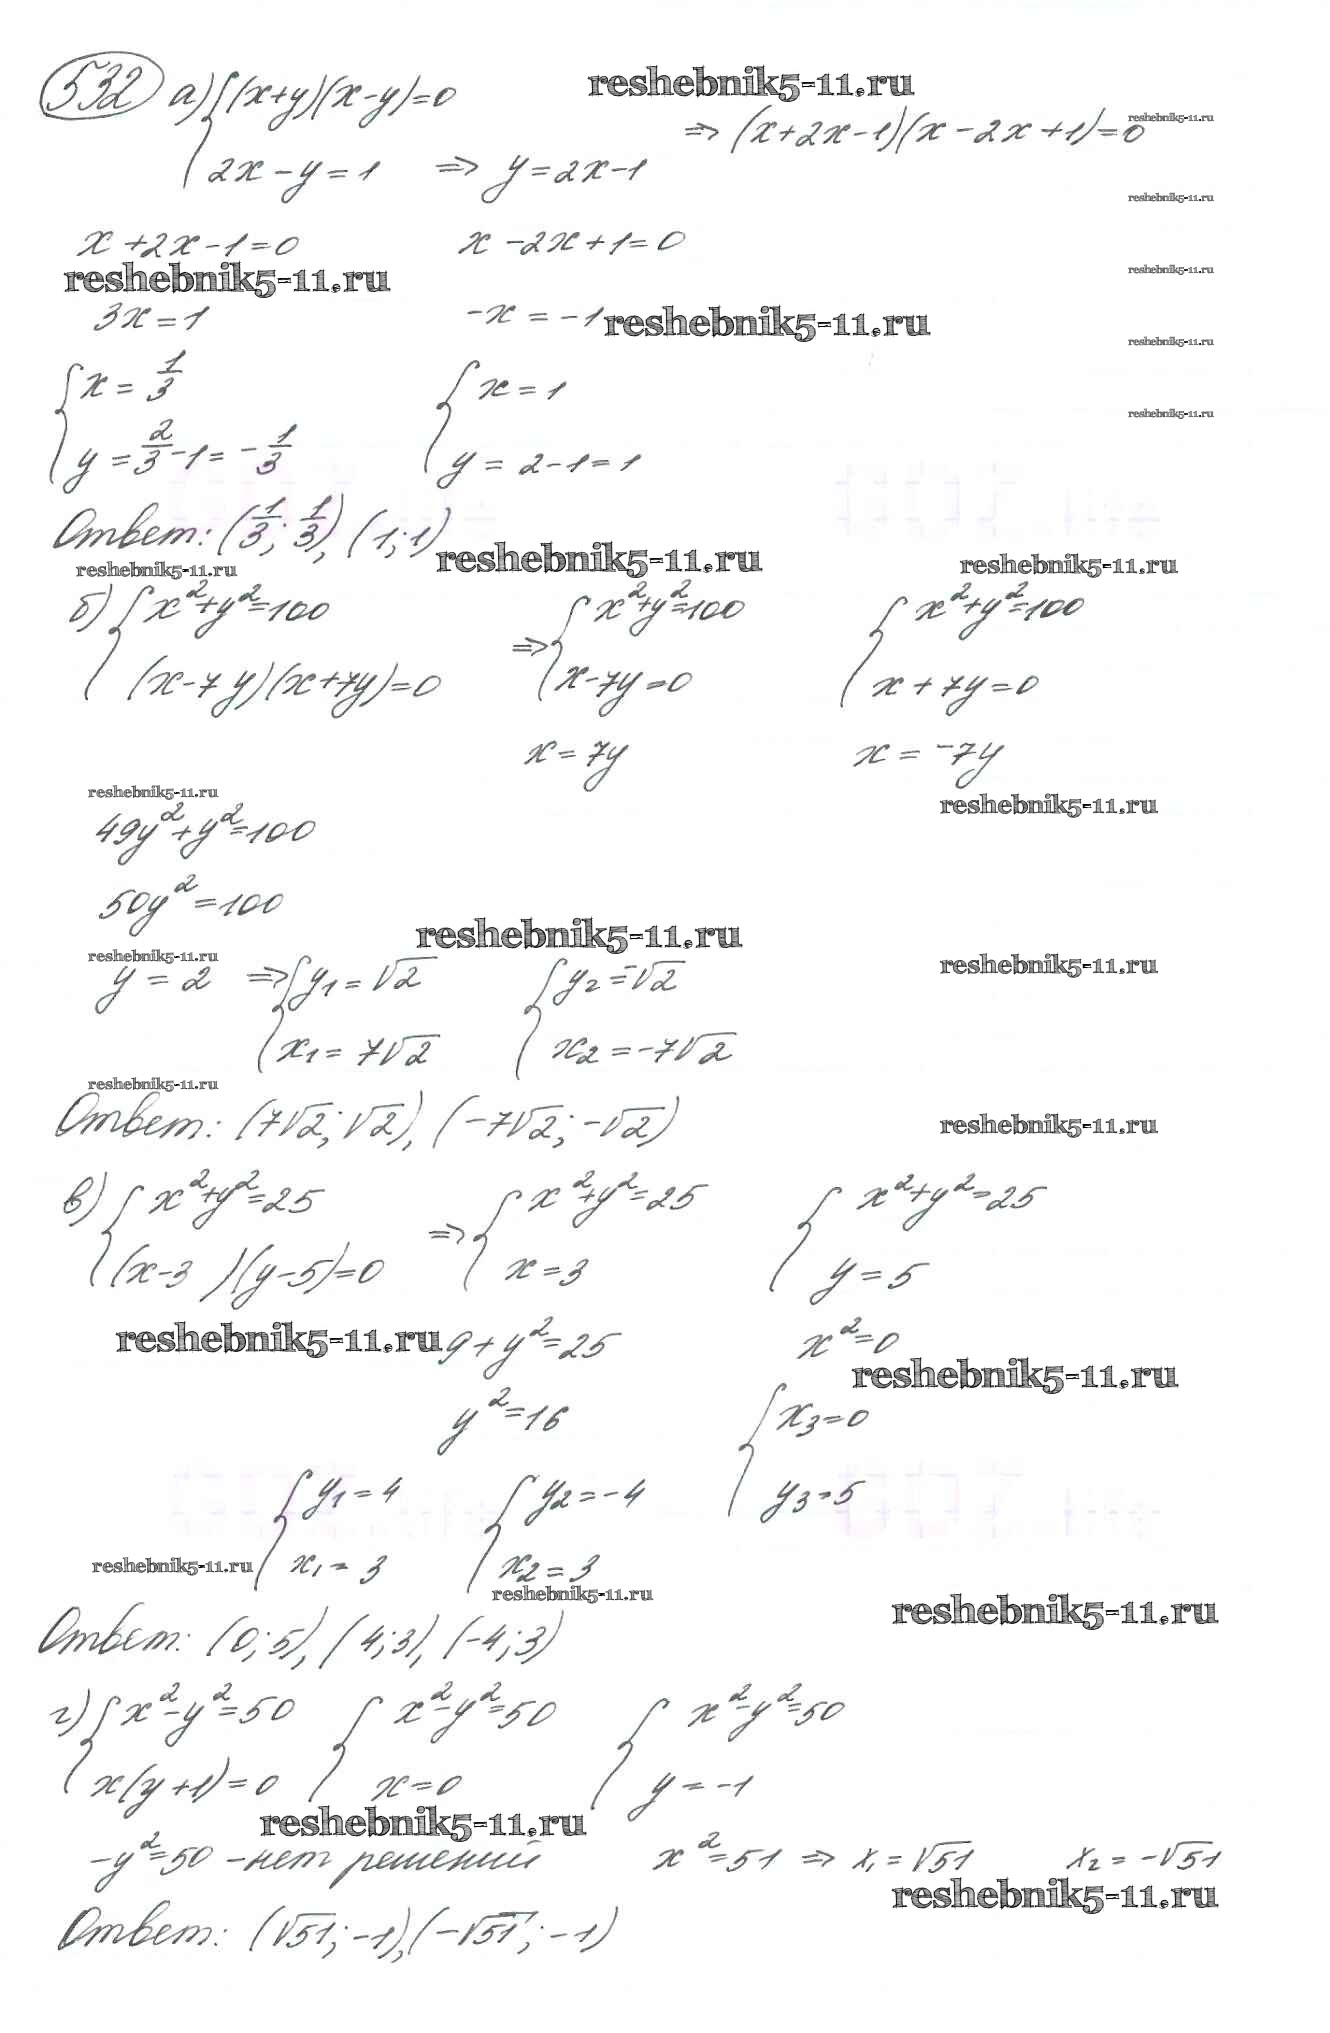 532 а) { (x+y)(x-y)=0 reshebnik5-11.ru
⇒ (x+2x-1)(x-2x+1)=0 reshebnik5-11.ru
2x-y=1 ⇒ y=2x-1
reshebnik5-11.ru
x+2x-1=0 x-2x+1=0
reshebnik5-11.ru reshebnik5-11.ru
3x=1 -x=-1 reshebnik5-11.ru
reshebnik5-11.ru
{ x=1/3 { x=1
reshebnik5-11.ru
y=2/3-1=-1/3 y=2-1=1
Ответ: (1/3; 1/3), (1;1)
reshebnik5-11.ru reshebnik5-11.ru reshebnik5-11.ru
б) { x²+y²=100 ⇒ { x²+y²=100 { x²+y²=100
(x-7y)(x+7y)=0 x-7y=0 x+7y=0
x=7y x=-7y
reshebnik5-11.ru reshebnik5-11.ru
49y²+y²=100
50y²=100
reshebnik5-11.ru
reshebnik5-11.ru reshebnik5-11.ru
y=2 ⇒ { y₁=√2 { y₂=-√2
x₁=7√2 x₂=-7√2
reshebnik5-11.ru
Ответ: (7√2;√2), (-7√2;-√2) reshebnik5-11.ru
в) { x²+y²=25 ⇒ { x²+y²=25 { x²+y²=25
(x-3)(y-5)=0 x=3 y=5
reshebnik5-11.ru 9+y²=25 x²=0
reshebnik5-11.ru
y²=16 { x₃=0
{ y₁=4 { y₂=-4 y₃=5
reshebnik5-11.ru x₁=3 x₂=3
reshebnik5-11.ru reshebnik5-11.ru
Ответ: (0;5), (4;3), (-4;3)
г) { x²-y²=50 { x²-y²=50 { x²-y²=50
x(y+1)=0 x=0 y=-1
reshebnik5-11.ru
-y²=50 - нет решений x²=51 ⇒ x₁=√51 x₂=-√51
reshebnik5-11.ru
Ответ: (√51;-1), (-√51;-1)